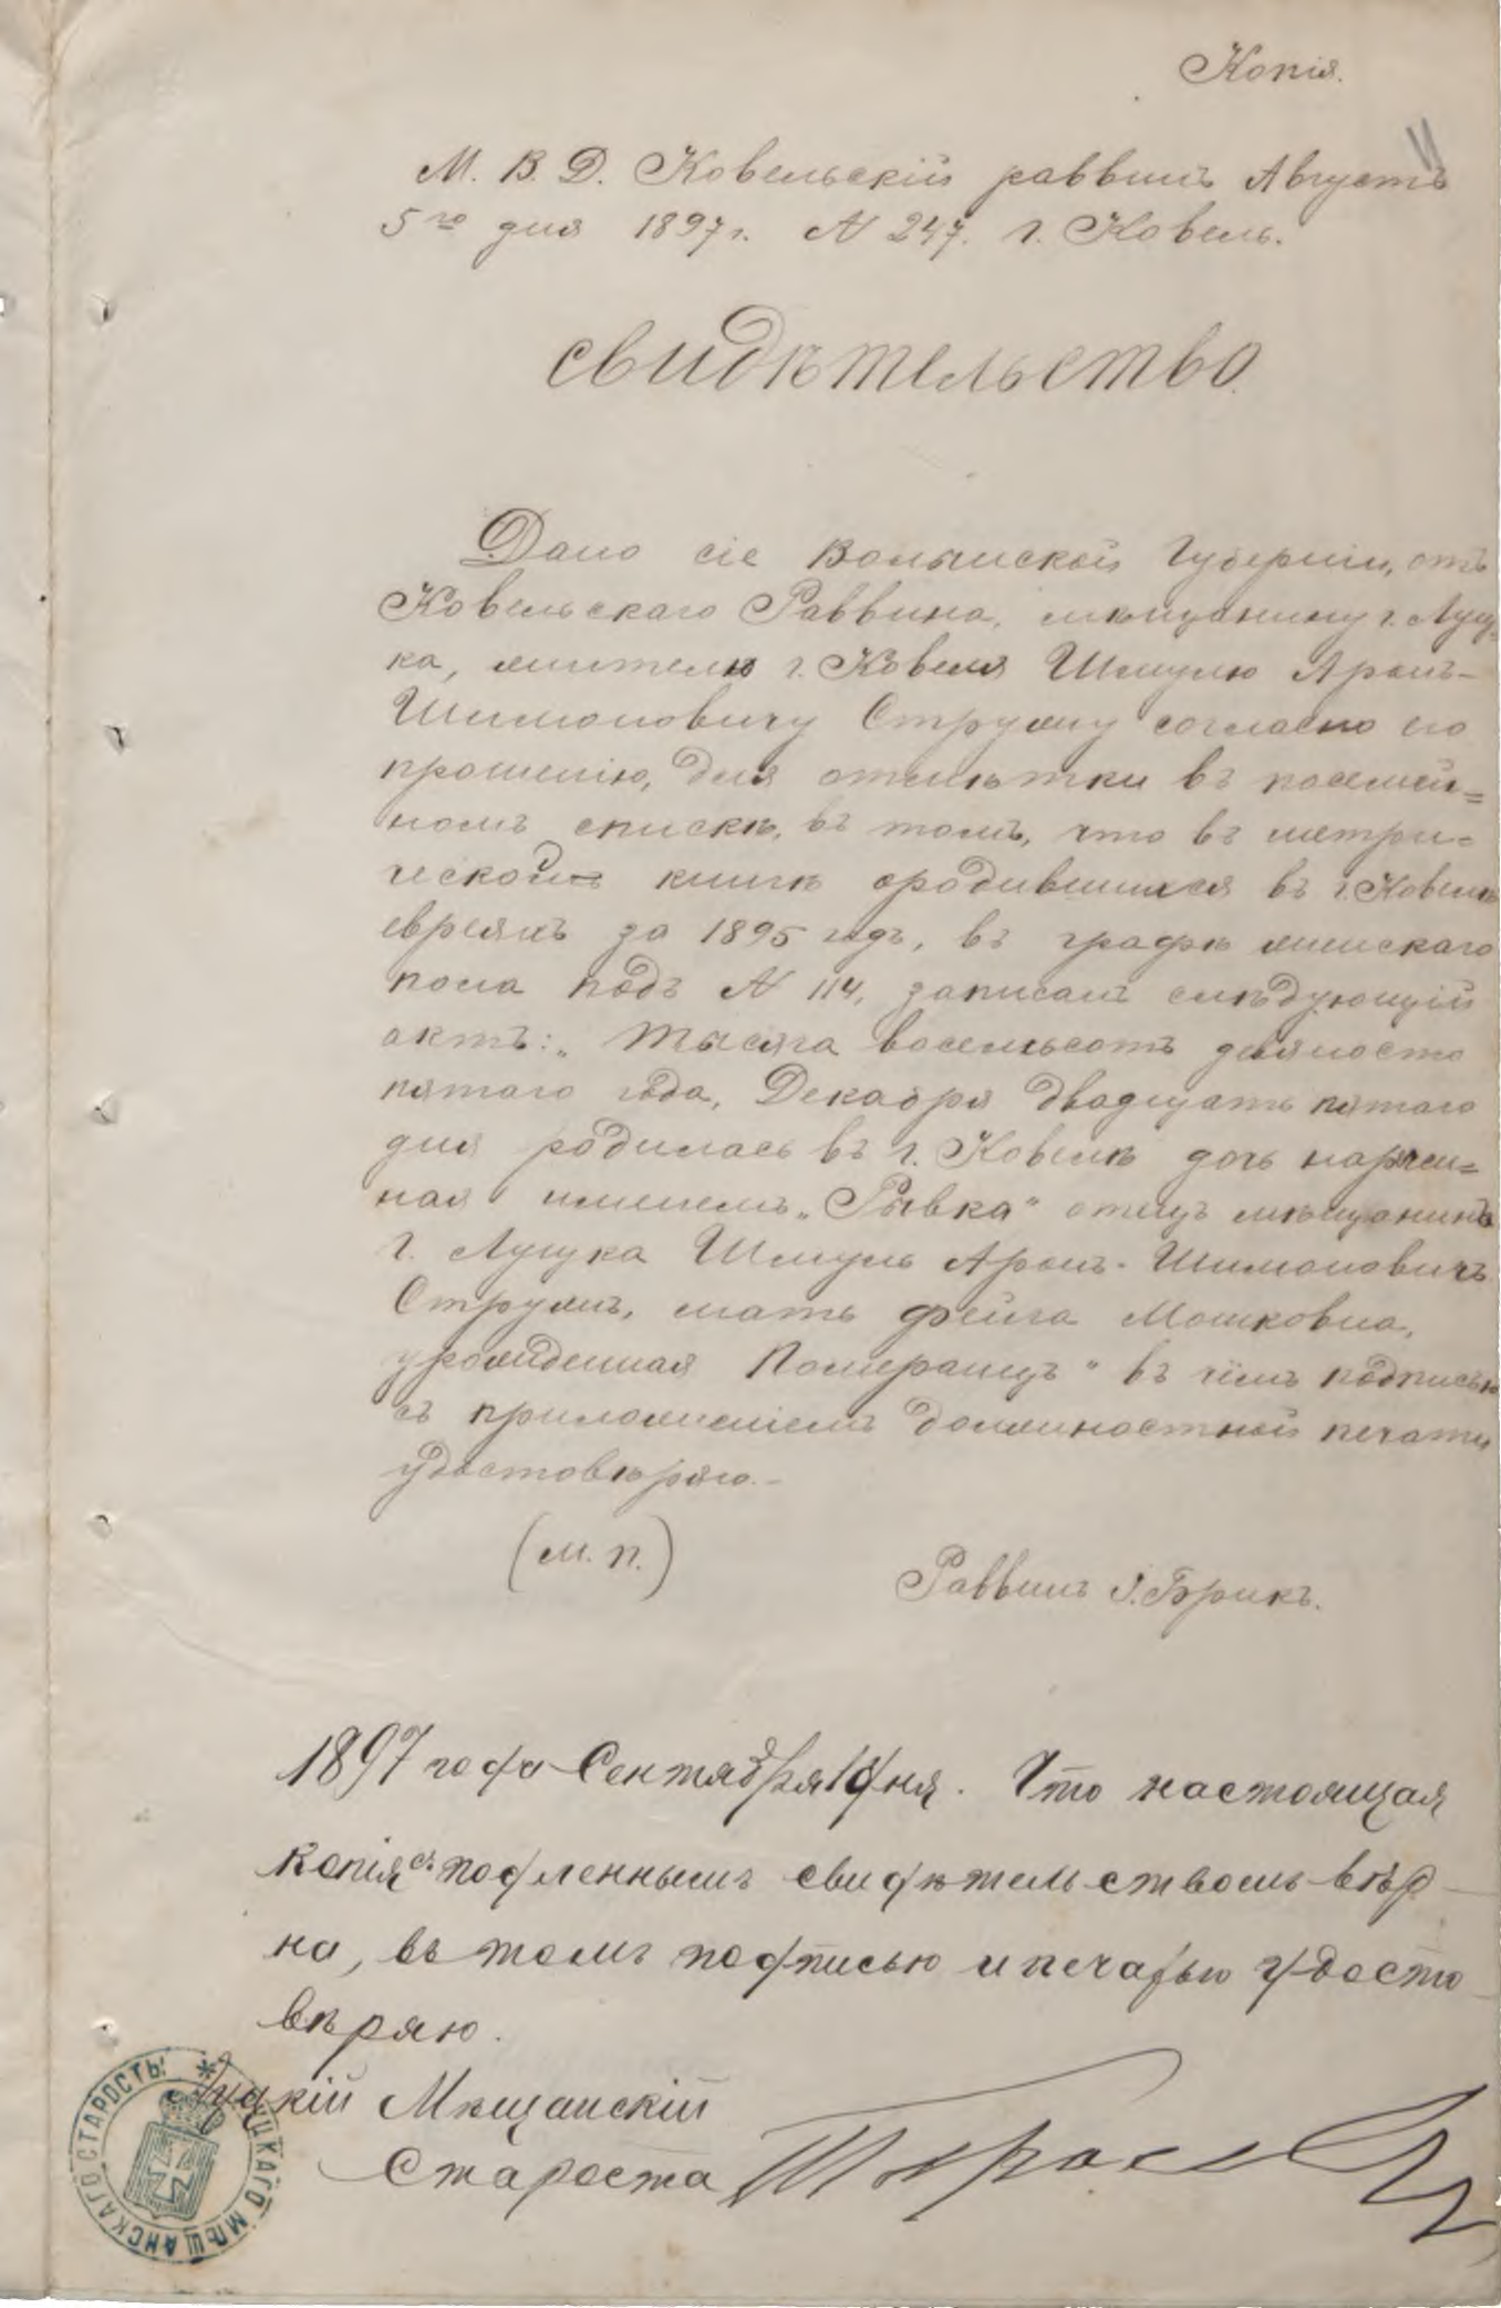 Копія.
М. В. Д. Ковельскій раввинъ Августъ
5го дня 1897 г. № 247. г. Ковель.
свидѣтельство.
Дано сіе Волынской Губерніи, отъ
Ковельскаго Раввина, мѣщанину г. Луц-
ка, жителю г. Ковеля Шмулю Аронъ-
Шимоновичу Стружу согласно его
прошенію, для отмѣтки въ посемей=
номъ спискѣ, въ томъ, что въ метри=
ческой книгѣ о родившихся въ г. Ковелѣ
евреяхъ за 1895 годъ, въ графѣ женскаго
пола подъ № 114, записанъ слѣдующій
актъ: „Тысяча восемьсотъ девяносто
пятаго года, Декабря двадцать пятаго
дня родилась въ г. Ковелѣ дочь наречен=
ная именемъ „Рывка“ отецъ мѣщанинъ
г. Луцка Шмуль Аронъ-Шимоновичъ
Стружъ, мать Фейга Мошковна,
урожденная Померанцъ“ въ чемъ подписью
съ приложеніемъ должностной печати
удостовѣряю.-
(м. п.)
Раввинъ І. Брикъ.
1897 года Сентября дня. Что настоящая
копія съ подленнымъ свидѣтельствомъ вѣр-
на, въ томъ подписью и печатью удосто-
вѣряю.
Луцкій Мѣщанскій
Староста
ЛУЦКАГО МѢЩАНСКАГО СТАРОСТЫ